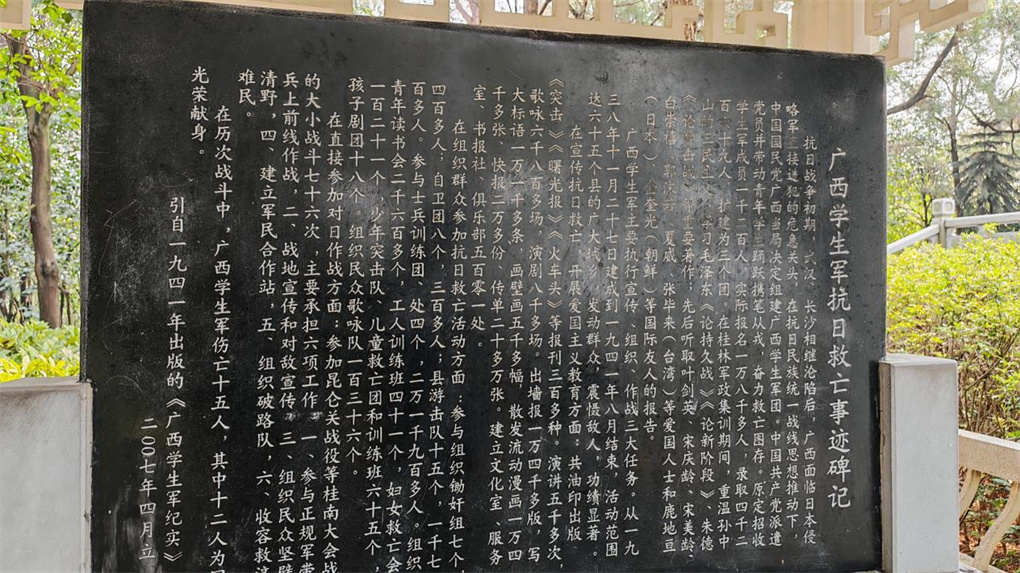 广西学生军抗日救亡事迹碑记
抗日战争初期，武汉、长沙相继沦陷后，广西面临日本侵
略军直接进犯的危急关头，在抗日民族统一战线思想推动下，
中国国民党广西当局决定组建广西学生军团。中国共产党派遣
党员并带动青年学生踊跃携笔从戎，奋力救亡图存。原定招收
学生军成员一千二百人，实际报名一万八千多人，录取四千二
百 十九人，扩建为三个团。在桂林军政集训期间，重温孙中
山 三民主义 学习毛泽东《论持久战》《论新阶段》、朱德
《论 击战》等重要著作，先后听取叶剑英、宋庆龄、宋美龄、
白崇禧、郭沫若、夏威、张毕来（台湾）等爱国人士和鹿地亘
（日本）、金奎光（朝鲜）等国际友人的报告。
广西学生军主要执行宣传、组织、作战三大任务。从一九
三八年十一月二十七日建成到一九四一年八月结束，活动范围
达六十五个县的广大城乡，发动群众，震慑敌人，功绩显著。
在宣传抗日救亡、开展爱国主义教育方面：共油印出版
《突击》《曙光报》《火车头》等报刊三百多种。演讲五千多次，
歌咏六千八百多场，演剧八千多场。出墙报一万四千多版，写
大标语一万一千多条，画壁画五千多幅，散发流动漫画一万四
千多张、快报二万多份、传单二十多万张。建立文化室、服务
室、书报社、俱乐部五百零一处。
在组织群众参加抗日救亡活动方面：参与组织锄奸组七个，
四百多人；自卫团八个，三百多人；县游击队十五个，一千七
百多人。参与士兵训练团一处四个，二万一千九百多人。组织
青年读书会二千六百多个，工人训练班四十一个，妇女救亡会
一百二十一个，少年突击队、儿童救亡团和训练班六十五个，
孩子剧团十八个。组织民众歌咏队一百三十六个。
在直接参加对日作战方面：参加昆仑关战役等桂南大会战
的大小战斗七十六次，主要承担六项工作。一、参与正规军带
兵上前线作战，二、战地宣传和对敌宣传，三、组织民众坚壁
清野，四、建立军民合作站，五、组织破路队，六、收容救济
难民。
在历次战斗中，广西学生军伤亡十五人，其中十二人为国
光荣献身。
引自一九四一年出版的《广西学生军纪实》
二〇〇七年四月立